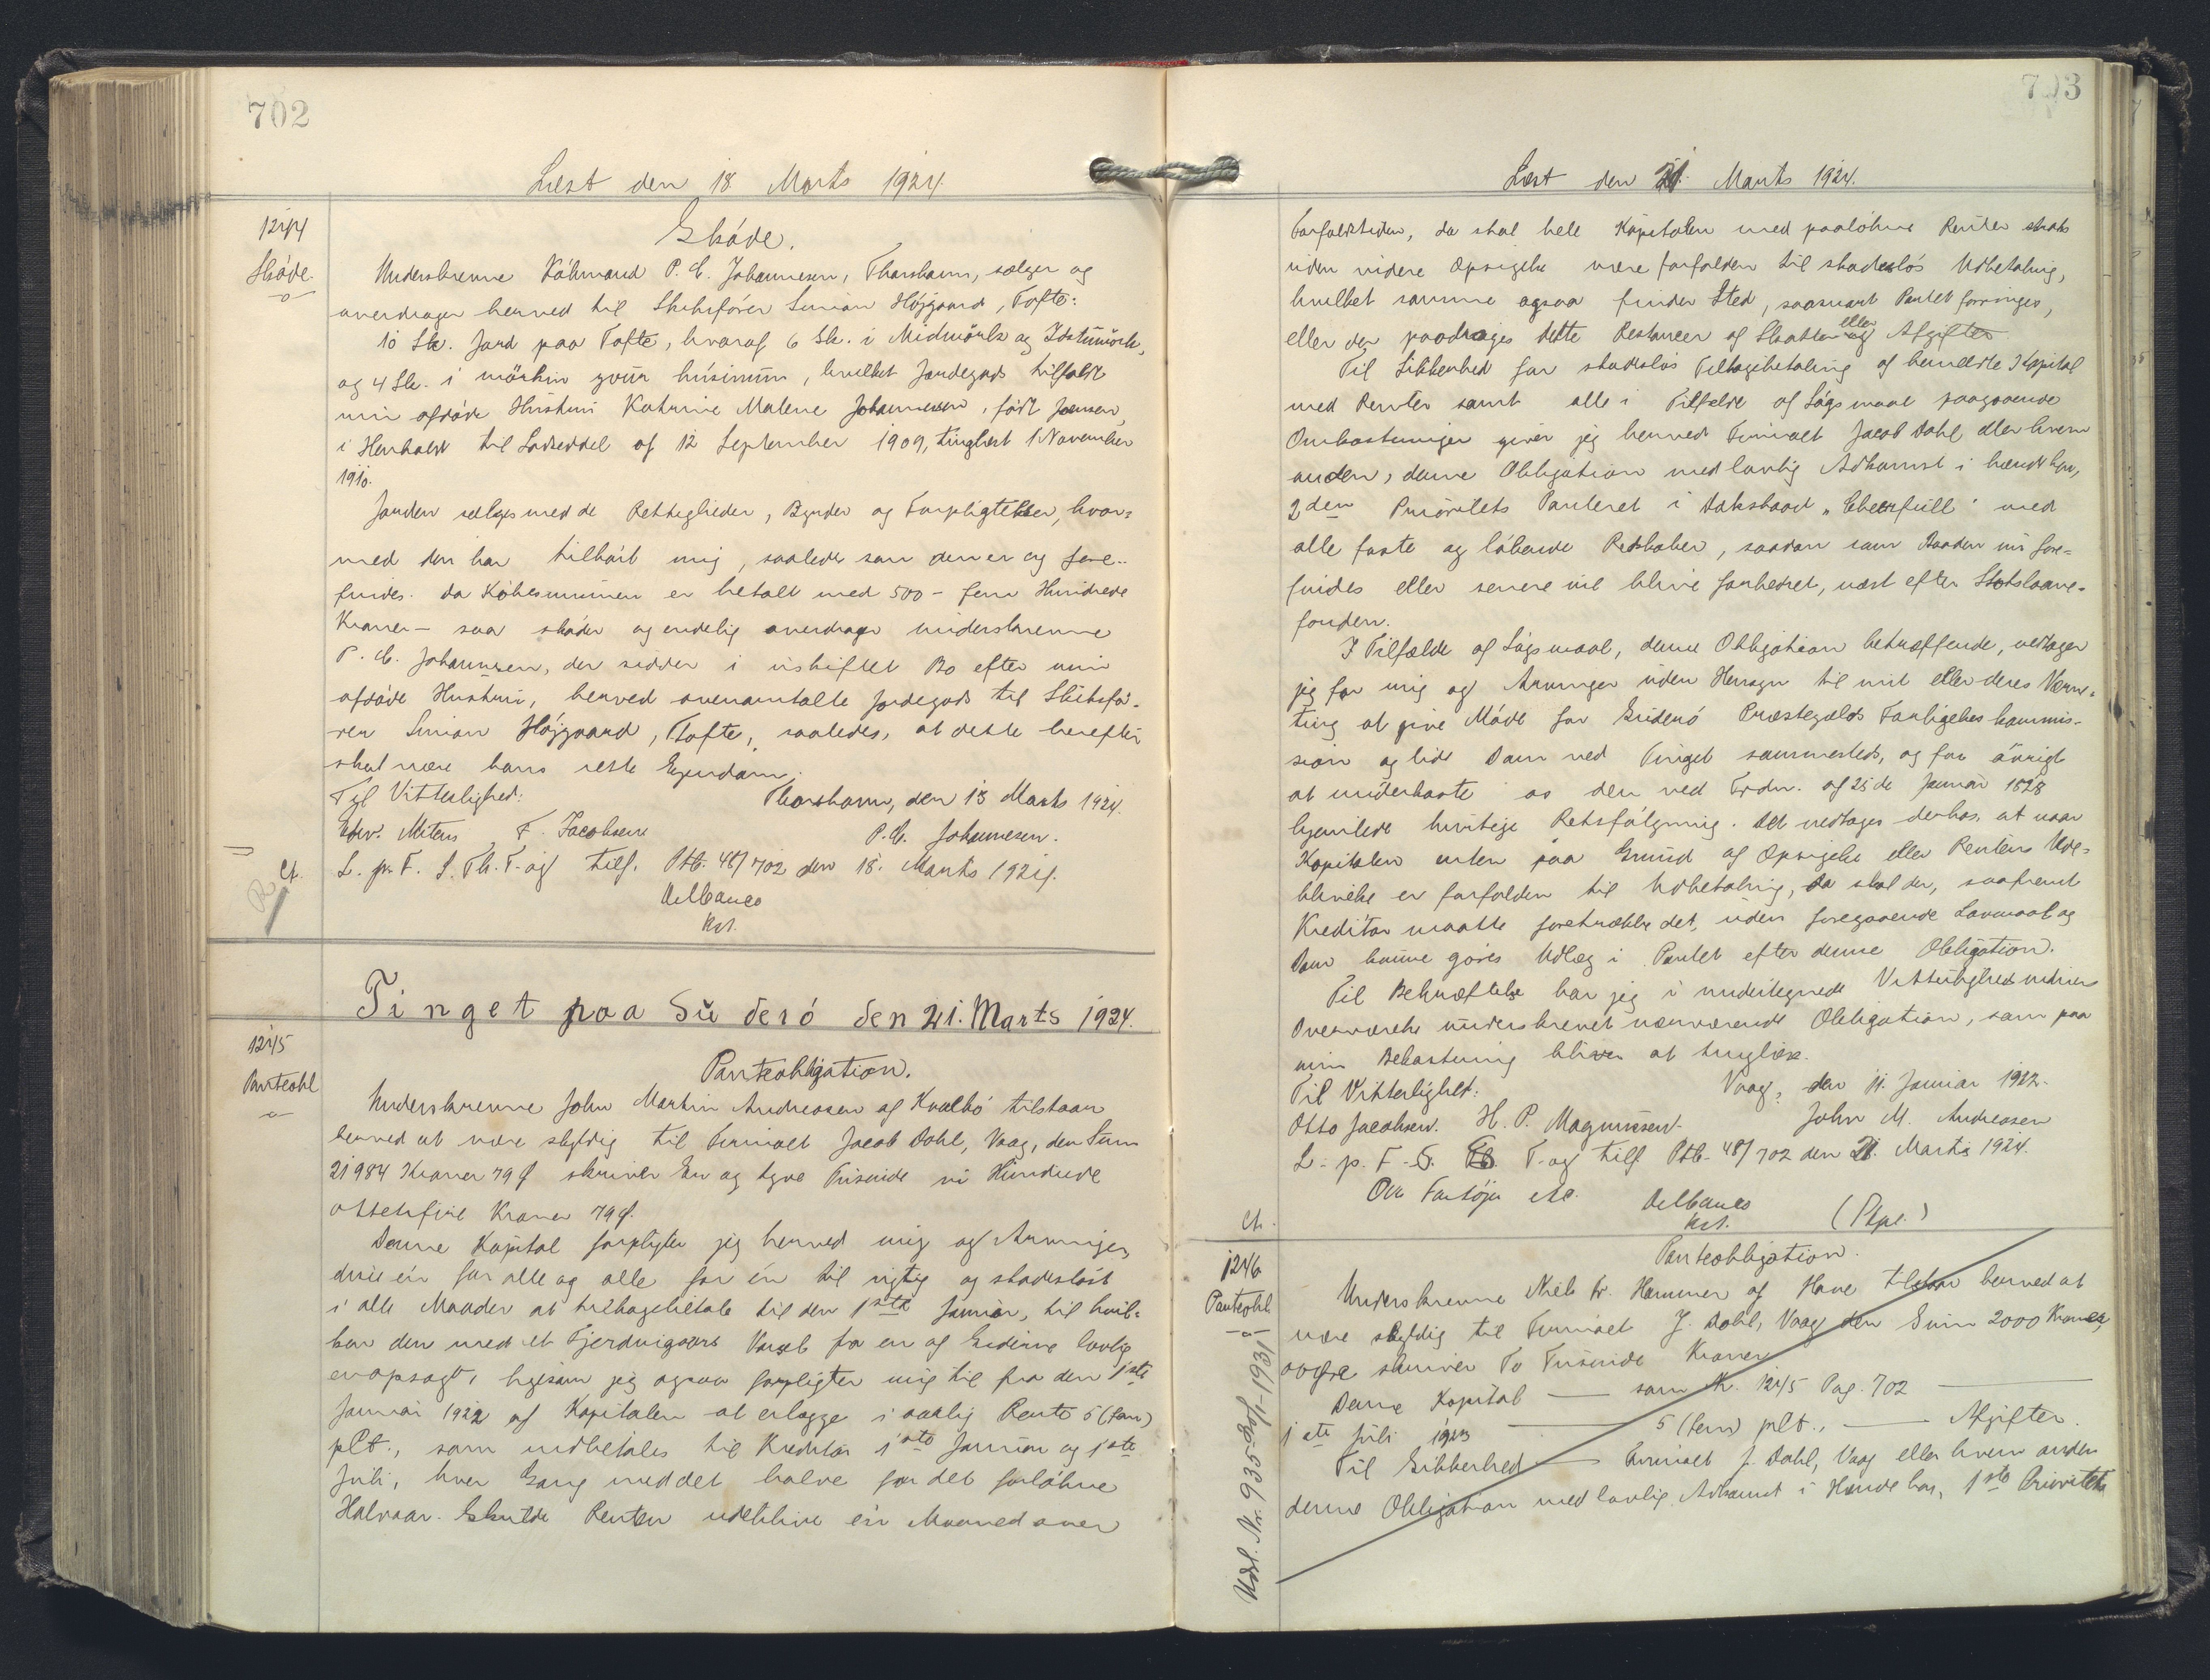 702
Læst den 18. Marts 1924.
1244
Skøde.
Skøde.
Underskrevne Købmand P. C. Johannesen, Thorshavn, sælger og
overdrager herved til Skibsfører Simon Højgaard, Tofte:
10 Sk. Jord paa Tofte, hvoraf 6 Sk. i Midmørk og Idstumørk,
og 4 Sk. i mørkin yvur húsinum, hvilket Jordegods tilfaldt
min afdøde Hustru Katrine Malene Johannesen, født Joensen,
i Henhold til Lodseddel af 12 September 1909, tinglæst 1 November
1910.
Jorden sælges med de Rettigheder, Byrder og Forpligtelser, hvor=
med den har tilhørt mig, saaledes som den er og fore-
findes. Da Købesummen er betalt med 500 - fem Hundrede
Kroner - saa skøder og endelig overdrager underskrevne
P. C. Johannesen, der sidder i uskiftet Bo efter min
afdøde Hustru, herved ovenomtalte Jordegods til Skibsfø-
rer Simon Højgaard, Tofte, saaledes, at dette herefter
skal være hans rette Ejendom.
Til Vitterlighed: Thorshavn, den 13 Marts 1924.
Edw. Mitens F. Jacobsen P. C. Johannesen.
Ct. L. p. F. S. Th. T. og tilf. Ptb. 48/702 den 18. Marts 1924.
kst.
Tinget paa Suderø den 21. Marts 1924.
1245
Panteobl
Panteobligation.
Underskrevne John Martin Andreasen af Kvalbø tilstaar
herved at være skyldig til Firmaet Jacob Dahl, Vaag, den Sum
21984 Kroner 79 Ø skriver En og tyve Tusinde ni Hundrede
ottetifire Kroner 79 Ø.
Denne Kapital forpligter jeg herved mig og Arvinger,
disse én for alle og alle for én til rigtig og skadesløst
i alle Maader at tilbagebetale til den 1ste Januar, til hvil-
ken den med et Fjerdingaars Varsel fra en af Siderne lovlig
er opsagt, ligesom jeg ogsaa forpligter mig til fra den 1ste
Januar 1922 af Kapitalen at erlægge i aarlig Rente 5 (fem)
pCt., som indbetales til Kreditor 1ste Januar og 1ste
Juli, hver Gang med det halve for det forløbne
Halvaar. Skulde Renten udeblive én Maaned over
703
Læst den 21. Marts 1924.
Forfaldstiden, da skal hele Kapitalen med paaløbne Renter straks
uden videre Opsigelse være forfalden til skadesløs Udbetaling,
hvilket samme ogsaa finder Sted, saasnart Pantet forringes,
eller der paadrages dette Restancer af Skatter og eller Afgifter.
Til Sikkerhed for skadesløs Tilbagebetaling af bemeldte Kapital
med Renter samt alle i Tilfælde af Søgsmaal paagaaende
Omkostninger giver jeg herved Firmaet Jacob Dahl eller hvem
anden, denne Obligation med lovlig Adkomst i hænde har,
2den Prioritets Panteret i Dæksbaad "Cheerfull" med
alle faste og løbende Redskaber, saadan som Baaden nu fore-
findes eller senere vil blive forbedret, næst efter Statslaane-
fonden.
I Tilfælde af Søgsmaal, denne Obligation betræffende, vedtager
jeg for mig og Arvinger uden Hensyn til mit eller deres Værne-
ting at give Møde for Suderø Præstegælds Forligelseskommis-
sion og lide Dom ved Tinget sammesteds, og for øvrigt
at underkaste os den ved Frdn. af 25de Januar 1828
hjemlede hurtige Retsfølgning. Det vedtages derhos, at naar
Kapitalen enten paa Grund af Opsigelse eller Rentens Ude-
blivelse er forfalden til Udbetaling, da skal der, saafremt
Kreditor maatte foretrække det, uden foregaaende Lovmaal og
Dom kunne gøres Udlæg i Pantet efter denne Obligation.
Til Bekræftelse har jeg i undertegnede Vitterlighedsvidners
Overværelse underskrevet nærværende Obligation, som paa
min Bekostning bliver at tinglæse.
Til Vitterlighed: Vaag, den 11. Januar 1922.
Otto Jacobsen. H. P. Magnussen. John M. Andreasen
L. p. F. S. T. og tilf. Ptb. 48/702 den 21. Marts 1924.
Om Fartøjer etc.
kst.
Ct.
1246
Panteobl
Udsl. Nr. 935-30/1-1931
Panteobligation.
Underskrevne Niels Fr. Hammer af Hove tilstaar herved at
være skyldig til Firmaet J. Dahl, Vaag den Sum 2000 Kroner,
skriver To Tusinde Kroner
Denne Kapital — som Nr. 1245 Pag. 702 —
1ste Juli 1923 — 5 (fem) pCt., — Afgifter.
Til Sikkerhed — Firmaet J. Dahl, Vaag eller hvem anden
denne Obligation med lovlig Adkomst i Hænde har, 1ste Prioritets